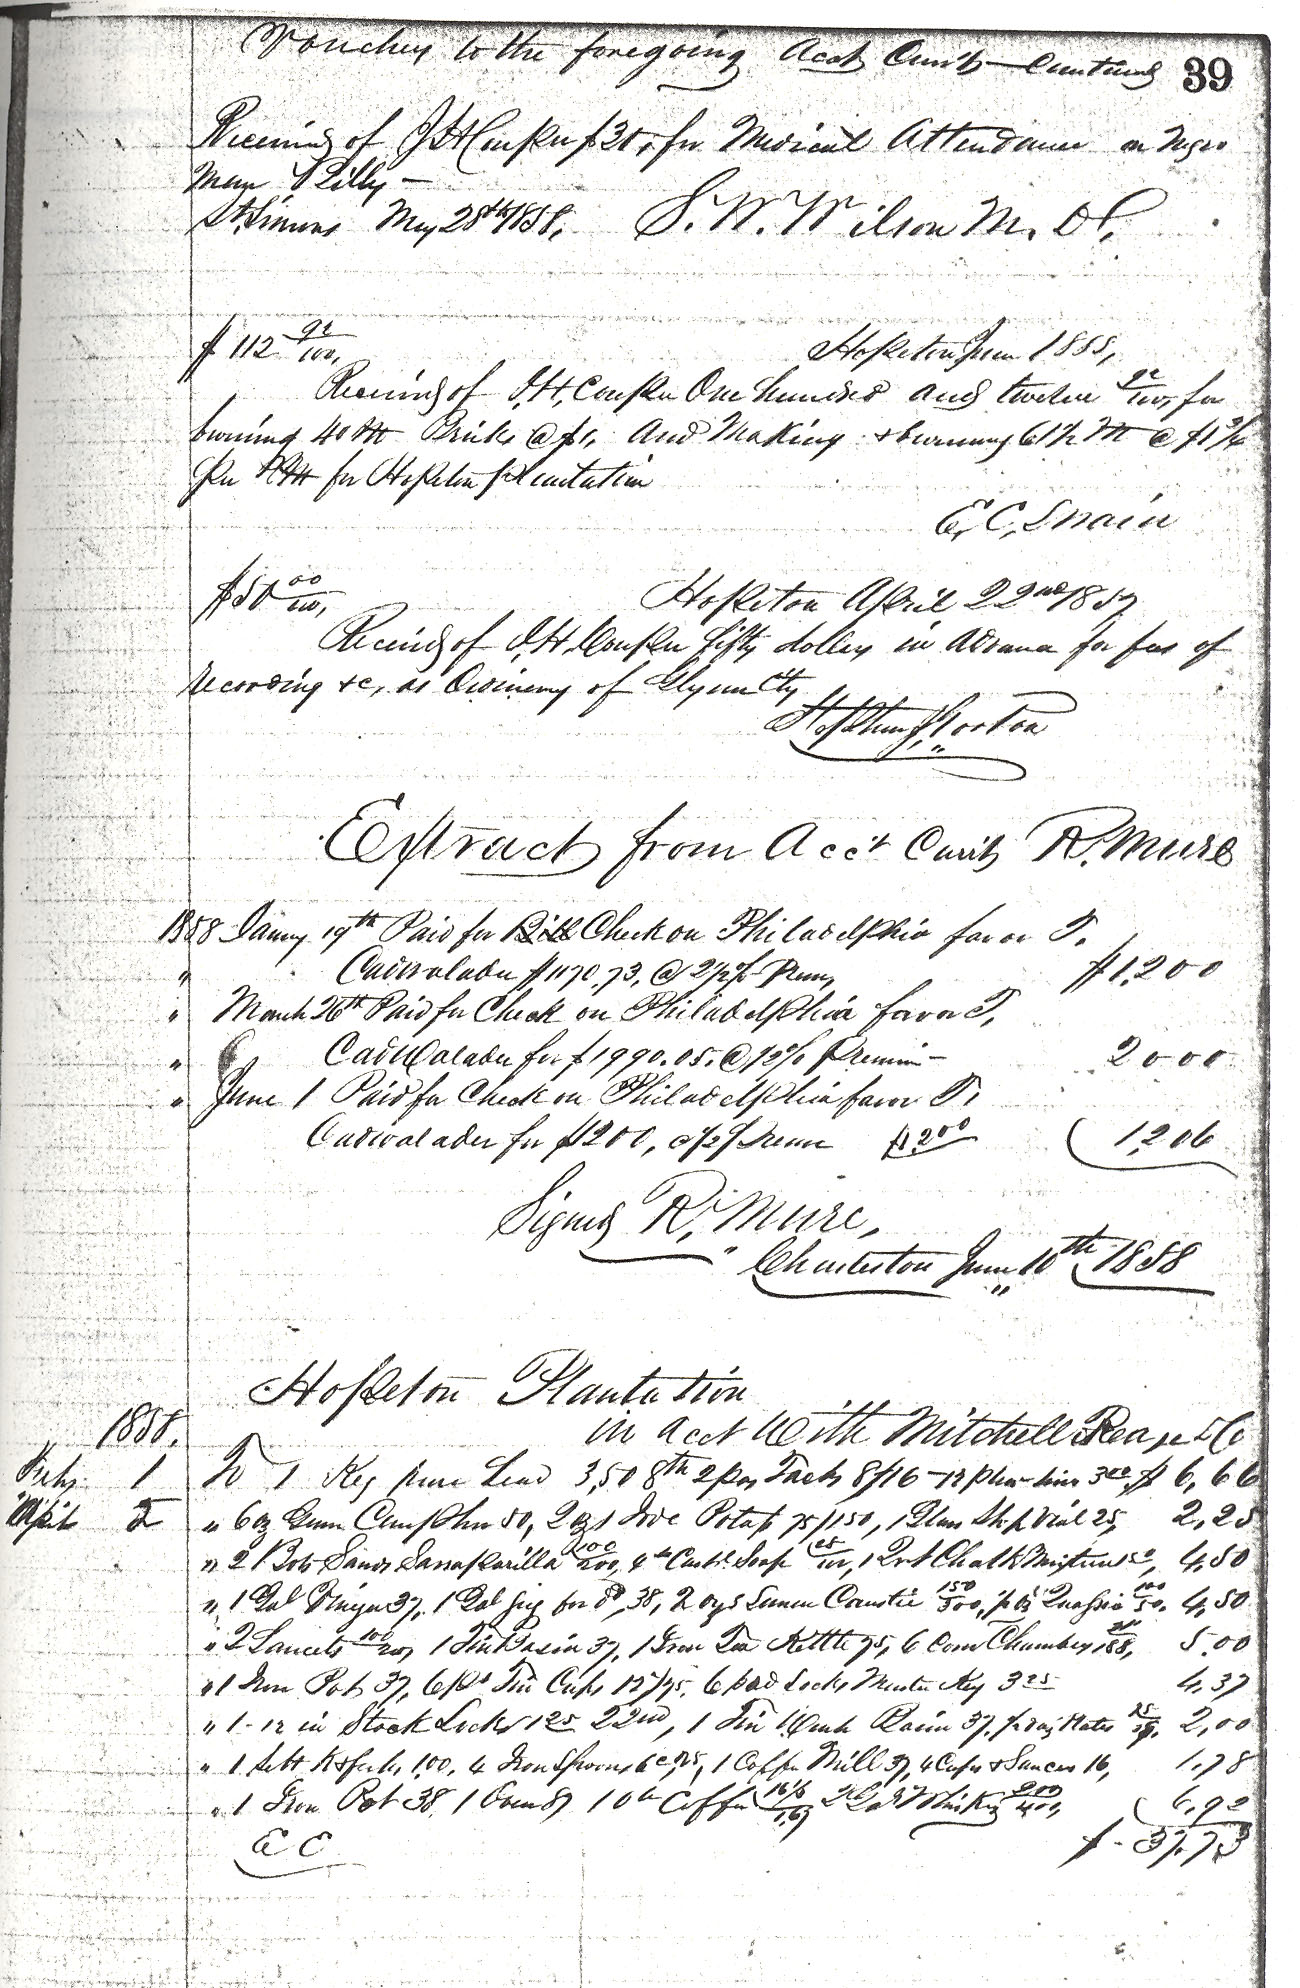 Vouchers to the foregoing Acct Currt — Continued 39
Received of J H Couper $20, for Medical Attendance on Negro
Man Billy —
St. Simons May 28th 1858, S. W. Wilson M. D.
$ 112 92/100, Hopeton June 1858,
Received of J. H. Couper One hundred and twelve 92/100, for
burning 40 M Bricks @ $1, and Making & burning 61½ M @
per M for Hopeton plantation
E. C.
$50 00/100, Hopeton April 22nd 1857
Received of J. H. Couper fifty dollars in advance for fees of
recording &c, as Ordinary of Glynn Cty
Horton
Extract from Acc't Currt R. Mure
1858 January 19th Paid for Bill Check on Philadelphia favor T.
" Cadwalader $1170.73, @ 2½ % Prem, $1,200
" March 26th Paid for Check on Philadelphia favor T,
" Cadwalader for $1990.05. @ ½ % Premium — 2000
" June 1 Paid for Check on Philadelphia favor T,
Cadwalader for $1200, @ ½ % Prem $1,200 1,206
Signed R. Mure,
Charleston June 10th 1858
Hopeton Plantation
1858. in acct With Mitchell & Co
Feby 1 To 1 Keg pure Lead 3,50 8th 2 pas Tacks 8/16 — 12 lines 300 $ 6,66
April 2 " 6 oz Gum Camphor 50, 2 ozs Iod Potash 75/150, 1 Glass Vial 25, 2,25
" 2 Bots Sands Sarsaparilla 100/200, 4 lb Cast. Soap 25/100, 1 Bot Chalk Mixture 4,50
" 1 Gal Vinegar 37, 1 Gal Jug for do 38, 2 ozs Lunar Caustic 150/300, Quassia 100/50. 4,50
" 2 Lancets 100/200, 1 Tin Basin 37, 1 Iron Tea Kettle 75, 6 Com Chambers 188, 5.00
" 1 Iron Pot 37, 6 pt Tin Cups 12½/75, 6 pad Locks Master Key 3 25 4,37
" 1 - 12 in Stock Lock 1 25, 1 Tin Wash Basin 37, Plates 2,00
" 1 Sett K & forks, 1.00, 4 Iron Spoons 6 c 25, 1 Coffee Mill 37, 4 Cups & Saucers 16, 1.78
" 1 Iron Pot 38, 1 Oven 87 10 lb Coffee 16⅔/1.67 2 Gals Whiskey 200/400, 6,92
E E $ - 37.73